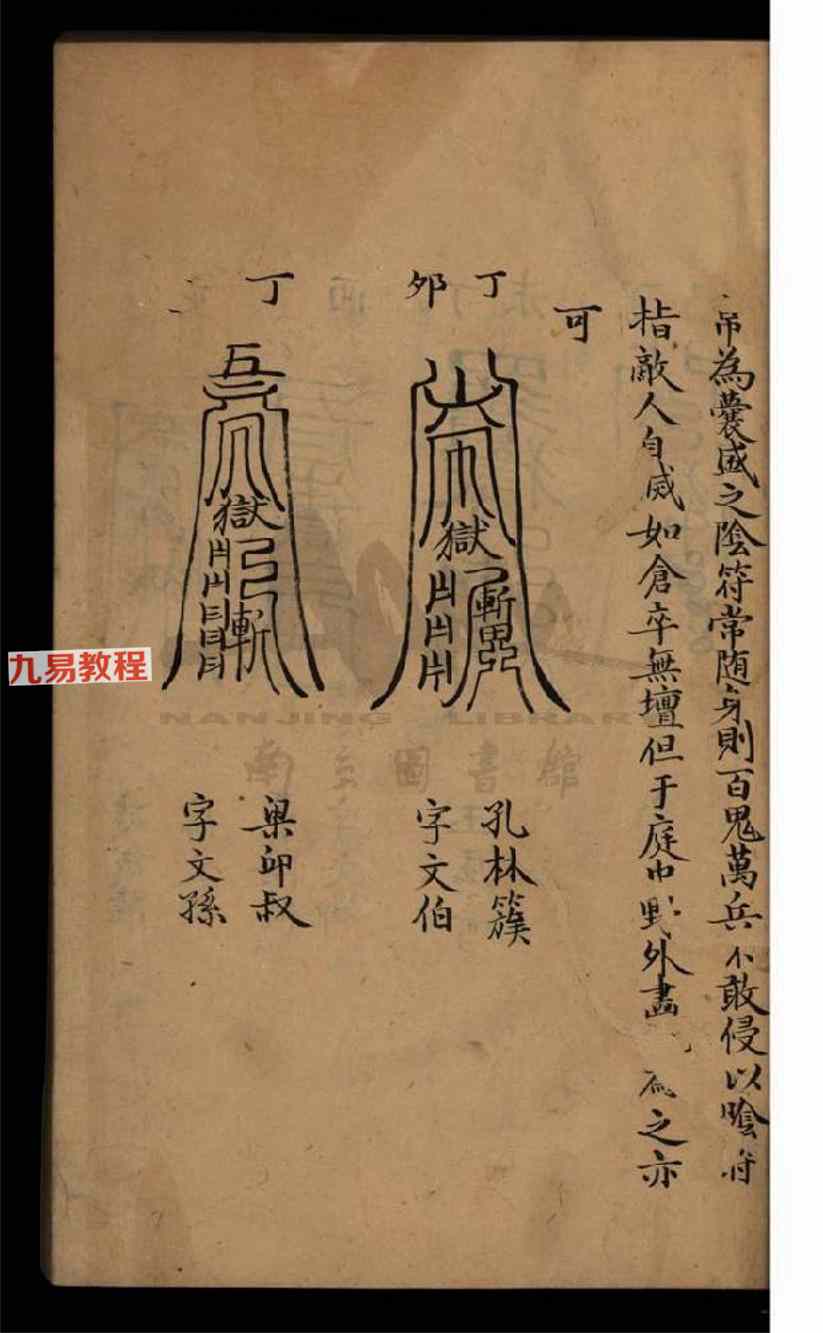 帛為囊盛之陰符常随身則百鬼萬兵不敢侵以陰符
指敵人自滅如倉卒無壇但于庭中野外畫之亦
可
丁卯
獄
斬
孔林簇
字文伯
丁
獄
斬
梁卬叔
字文孫
九易教程
NANJING LIBRAR
南京圖書館